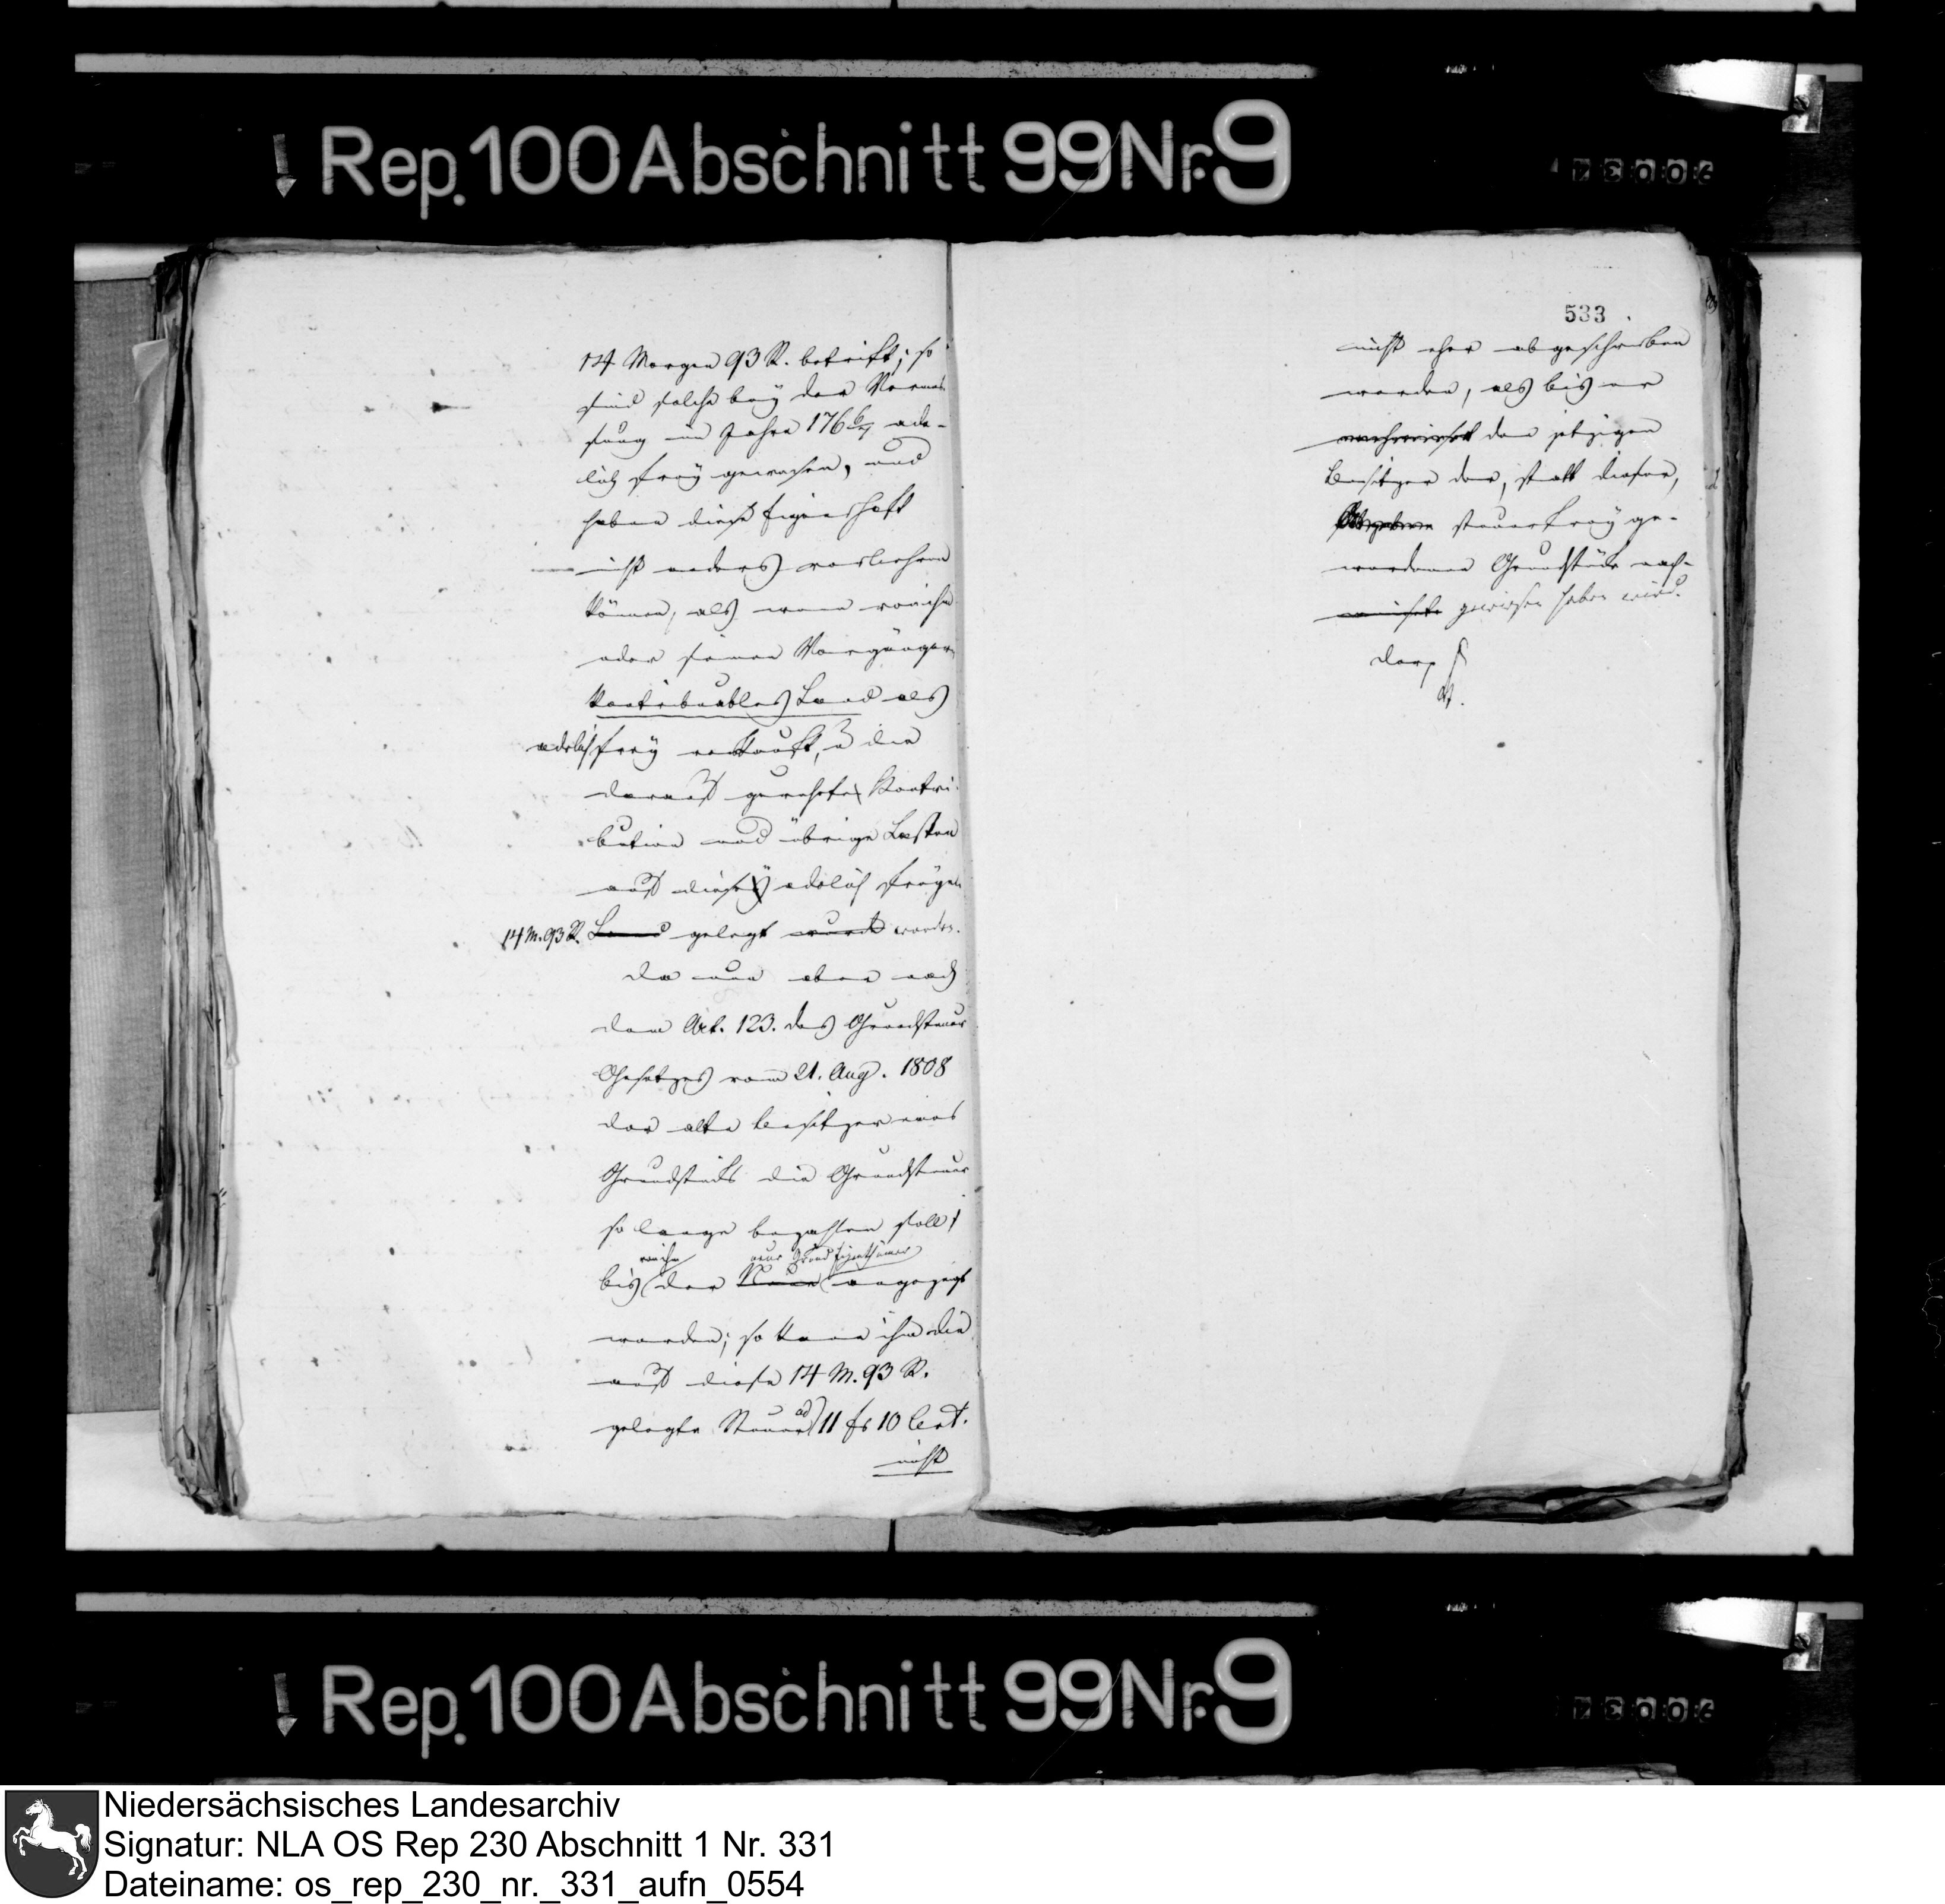 Rep. 100 Abschnitt 99 Nr. 9
14 Morgen 93 R. betrift; so
sind solche bey der Vermes
sung im Jahre 176 6/7 ade-
lich frey gewesen, und
haben diese Eigenschaft
nicht anders verliehren
können, als wenn von ihm
oder seinen Vorgängern
kontribuables Land als
adelich frey verkauft, u die
darauf geruhete Kontri-
bution und übrige Lasten
auf diese adelich freyen
14 M. 93 R. Land gelegt wurde worden.
Da nun aber nach
dem Art. 123. des Grundsteuer
Gesetzes vom 21. Aug. 1808
der alte Besitzer eines
Grundstücks die Grundsteuer
so lange bezahlen soll,
von ihm neue Grund Eigenthümer
bis der Neue angezeigt
worden; so kann ihm die
auf diese 14 M. 93 R.
gelegte Steuer ad 11 fr 10 Cent.
nicht
533
nicht eher abgeschrieben
werden, als bis er
nachweiset den jetzigen
Besitzer der, statt dieser,
steuerfrey ge-
wordenen Grundstücke nach-
weiset gewiesen haben wird.
Rep. 100 Abschnitt 99 Nr. 9
Niedersächsisches Landesarchiv
Signatur: NLA OS Rep 230 Abschnitt 1 Nr. 331
Dateiname: os_rep_230_nr._331_aufn_0554